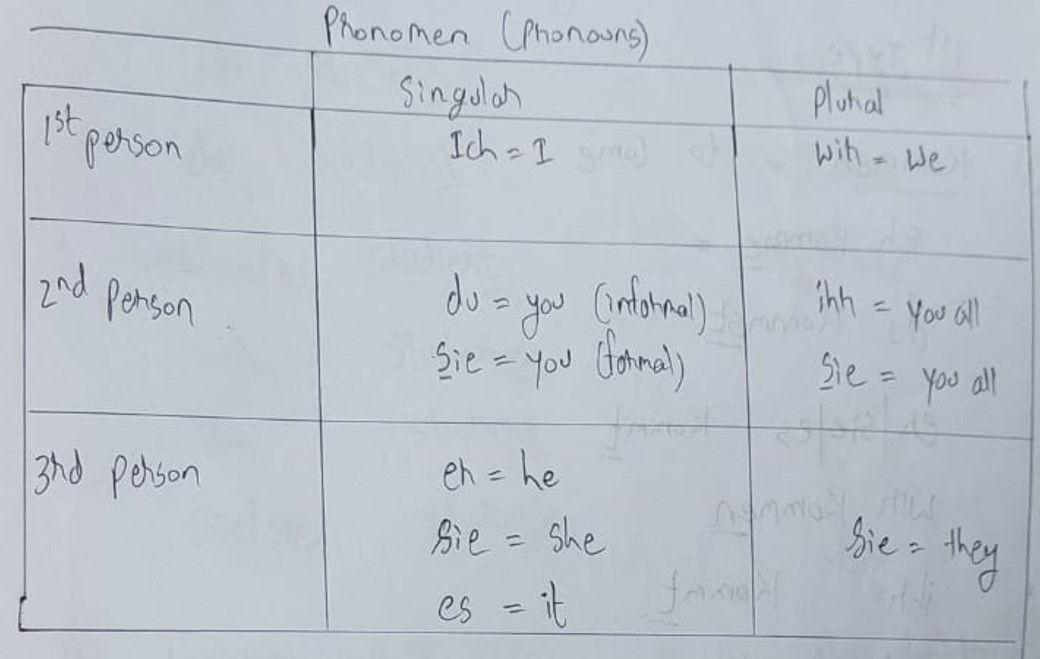 Pronomen (Pronouns)
Singular Plural
1st person Ich = I wir = We
2nd Person du = you (informal) ihr = you all
Sie = you (formal) Sie = you all
3rd person er = he
Sie = she Sie = they
es = it